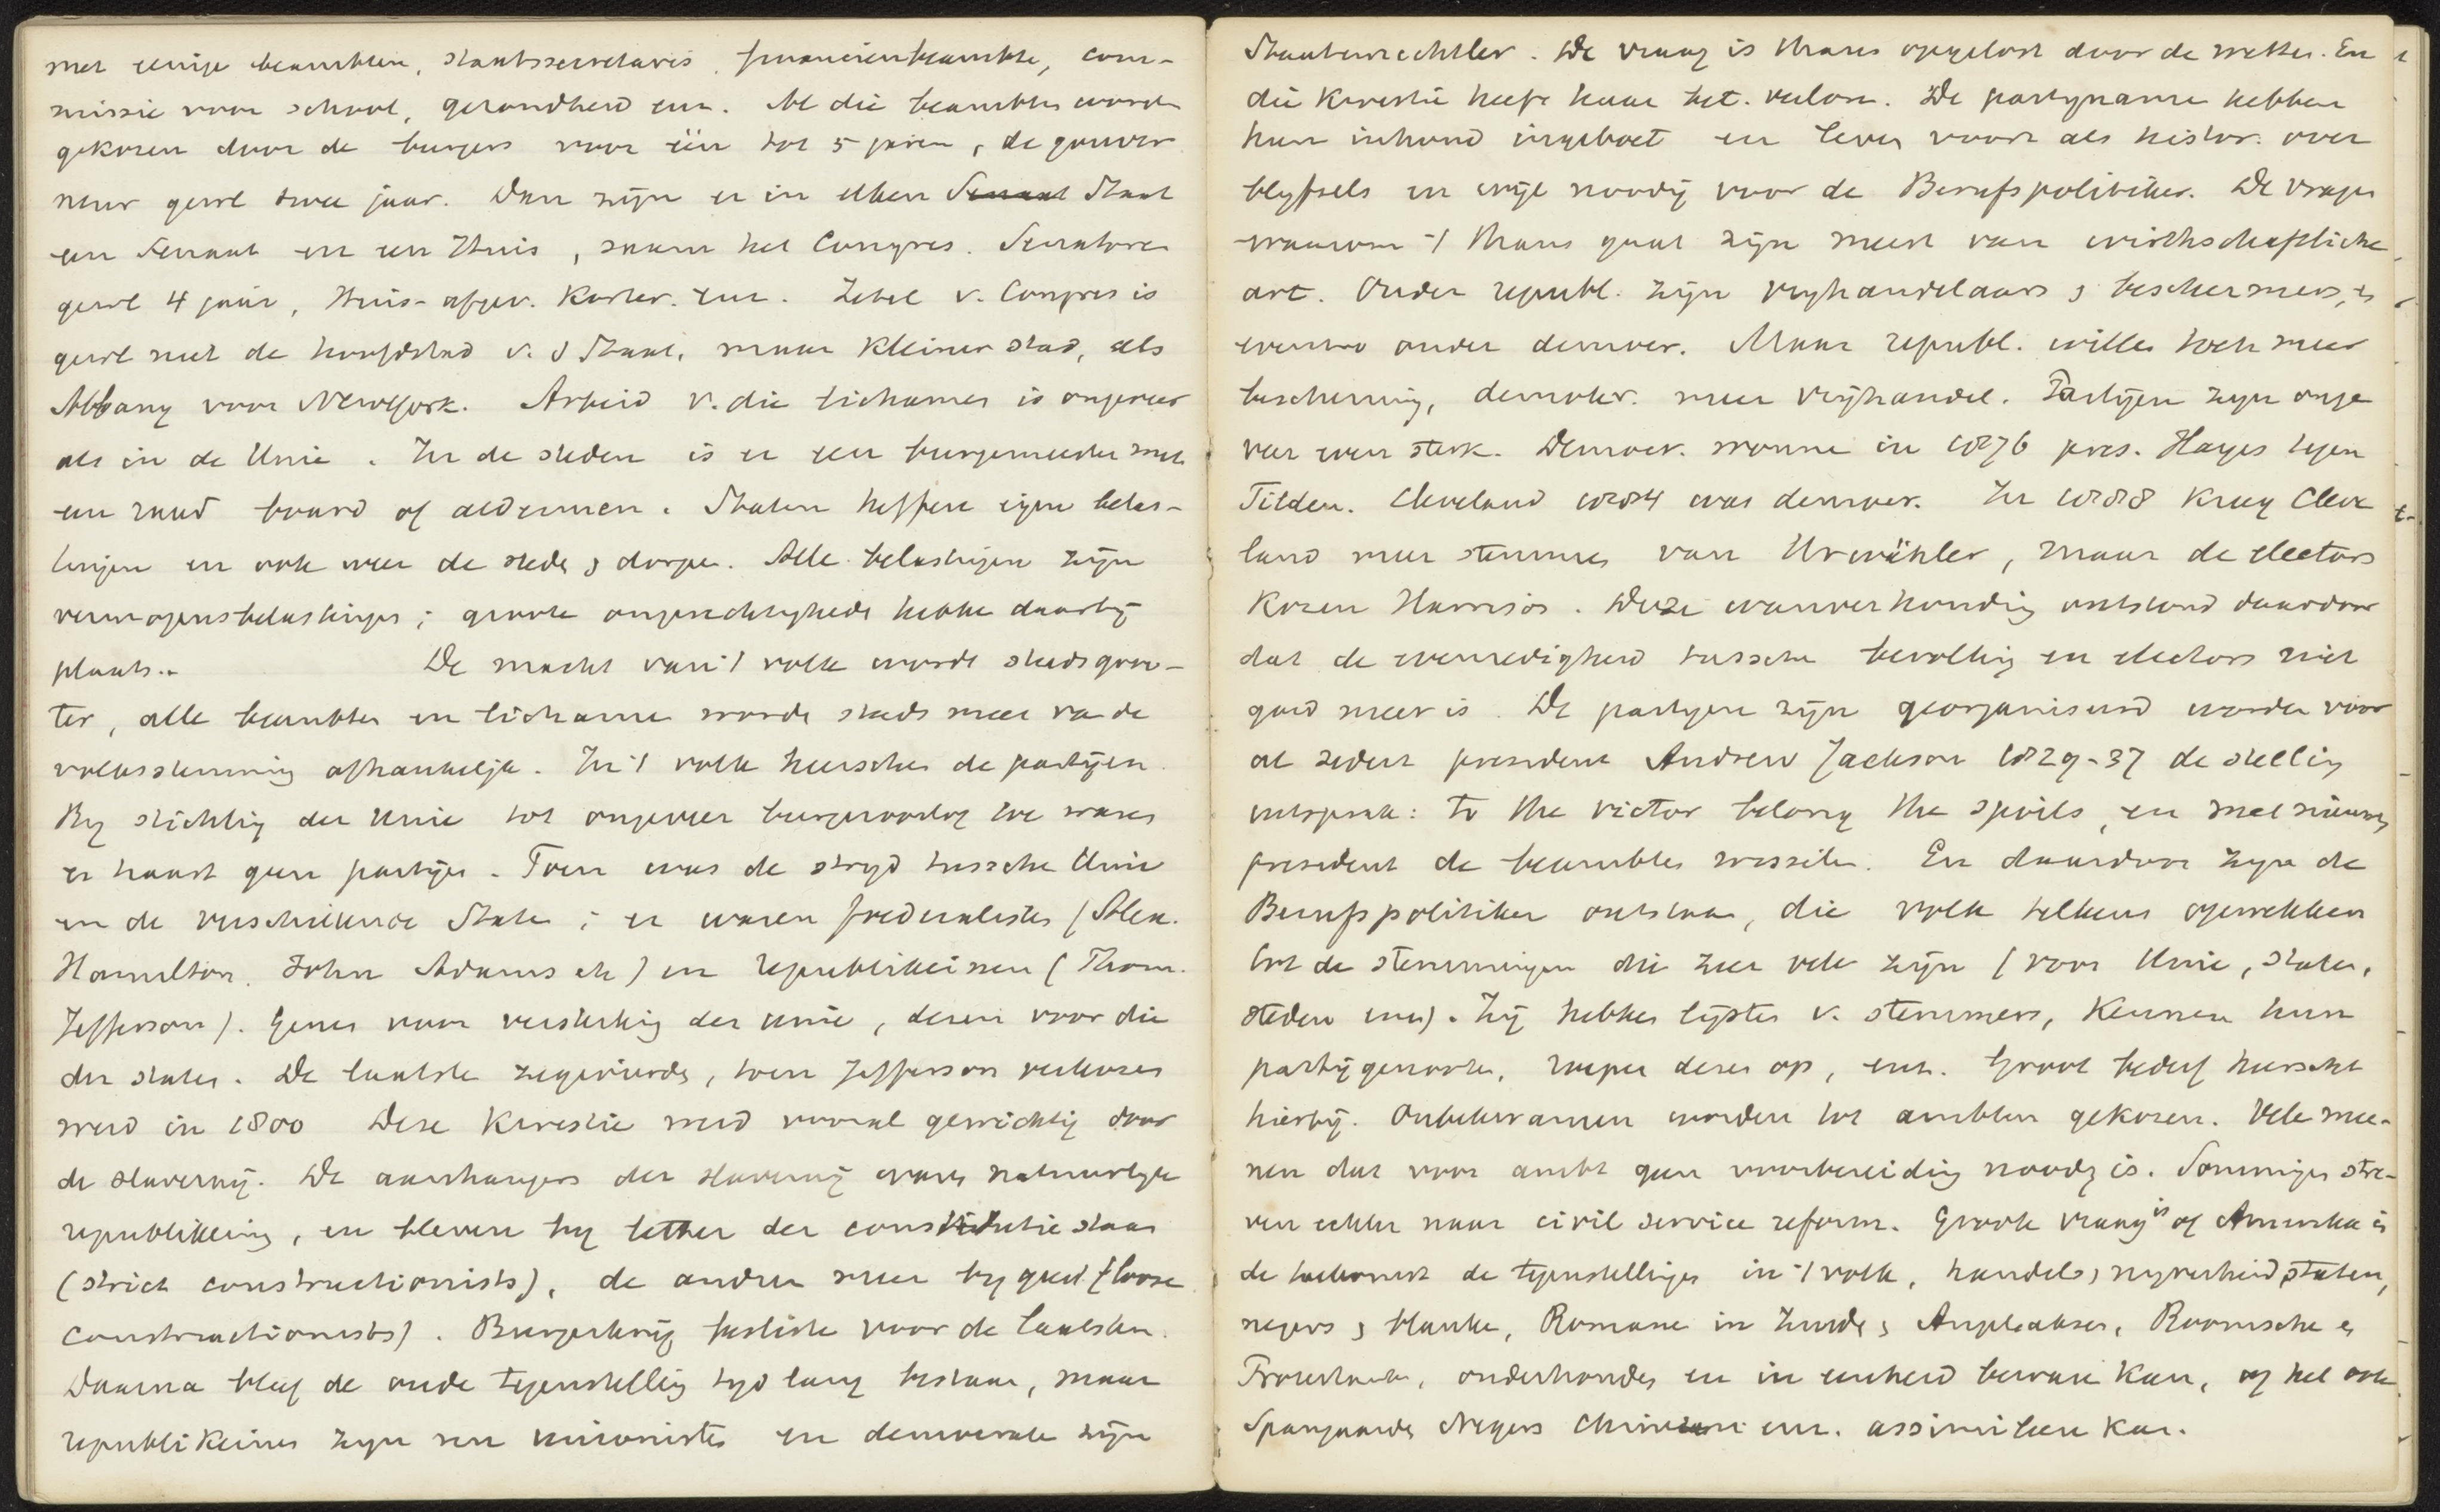 met eenige beambten, staatssecretaris, financienbeambte, com-
missie voor school, gezondheid enz. Al die beambten worden
gekozen door de burgers voor één tot 5 jaren, de gouver
neur gewl twee jaar. Dan zijn er in elken Senaat Staat
een Senaat en een Huis, saam het Congres. Senatoren
gewl 4 jaar, Huis-afgev. korter. enz. Zetel v. Congres is
gewl niet de hoofdstad v. d Staat, maar kleiner stad, als
Albany voor NewYork. Arbeid v. die lichamen is ongeveer
als in de Unie. In de steden is er een burgemeester met
een raad board of aldermen. Staten heffen eigen belas-
tingen en ook weer de steden & dorpen. Alle belastingen zijn
vermogensbelastingen; groote ongerechtigheden hebben daarbij
plaats.. De macht van 't volk wordt steeds groo-
ter, alle beambten en lichamen worden steeds meer van de
volksstemming afhankelijk. In 't volk heerschen de partijen.
By stichting der Unie tot ongeveer burgeroorlog toe waren
er haast geen partijen. Toen was de strijd tusschen Unie
en de verschillende Staten; er waren foederalisten (Alex.
Hamilton, John Adams etc) en republikeinen (Thom.
Jefferson). Genen voor versterking der unie, dezen voor die
der staten. De laatste zegevierden, toen Jefferson verkozen
werd in 1800 Deze kwestie werd vooral gewichtig door
de slavernij. De aanhangers der slavernij waren natuurlyk
republikeins, en bleven by letter der constitutie staan
(strict constructionists), de andren meer by geest (loose
constructionists). Burgerkrijg besliste voor de laatsten.
Daarna bleef de oude tegenstelling tyd lang bestaan, maar
republikeinen zyn nu unionisten en democraten zijn
Staatenrechtler. De vraag is thans opgelost door de wetten. En
die kwestie heeft haar bet. verloren. De partynamen hebben
hun inhoud ingeboet en leven voort als histor. over
blyfsels en wijl noodig voor de Berufspolitiker. De vragen
waarom 't thans gaat zijn meest van wirthschaftliche
art. Onder republ. zijn vryhandelaars & beschermers, &
evenzoo onder democr. Maar republ. willen toch meer
bescherming, demokr. meer vrijhandel. Partijen zyn onge
veer even sterk. Democr. wonnen in 1876 pres. Hayes tegen
Tilden. Cleveland 1884 was democr. In 1888 kreeg Cleve
land meer stemmen van Urwähler, maar de electors
kozen Harrison. Deze wanverhouding ontstond daardoor
dat de evenredigheid tusschen bevolking en electors niet
goed meer is. De partyen zijn georganiseerd worden voor
al sedert president Andrew Jackson 1829-37 de stelling
uitsprak: to the victor belong the spoils, en met nieuwen
president de beambten wisselen. En daardoor zyn de
Berufspolitiker ontstaan, die volk telkens opwekken
tot de stemmingen die zeer vele zijn (voor Unie, staten,
steden enz). Zij hebben lijsten v. stemmers, kennen hun
partijgenooten, roepen dezen op, enz. Groot bederf heerscht
hierbij. Onbekwamen worden tot ambten gekozen. Vele mee-
nen dat voor ambt geen voorbereiding noodig is. Sommigen stre-
ven echter naar civil service reform. Groote vraag is of Amerika in
de toekomst de tegenstellingen in 't volk, handels & nyverheid staten,
negers & blanken, Romanen in Zuiden & Angelsaksen, Roomschen en
Protestanten, onderhouden en in eenheid bewaren kan, of het ook
Spanjaarden Negers Chineezen enz. assimileeren kan.